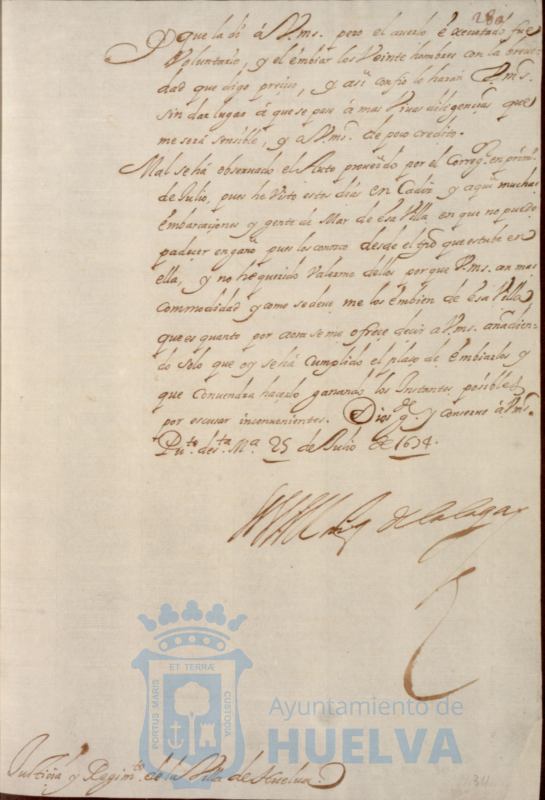 280
que la di à Vms. pero el averlo èxecutado fue
Voluntario, y el èmbiar los Veinte hombres con la breve-
dad que digo preciso, y asi confio lo haràn Vms.
sin dar lugar à que se pase à mas Vivas diligencias que
me serà sensible, y a Vms. de poco credito.
Mal se hà observado el Auto proveydo por el Correg.or en prinl.
de Julio, pues he Visto estos dias en Cadiz y aqui muchas
èmbarcaciones y gente de Mar de esa Villa en que no puedo
padecer engaño pues los conozco desde el tpo que estube en
ella, y no he querido Valerme dellos por que Vms. con mas
commodidad y como se deve me los èmbien de esa Villa
que es quanto por aora se me ofrece decir a Vms. añadien-
do solo que oy se hà Cumplido el plaso de èmbiarlos y
que Convendrà hacerlo ganando los Instantes posibles
por escusar inconvenientes. Dios g.de y Conserve à Vms.
Pu.to de S.ta M.a 25 de Julio de 1674.
de la Vega
PORTUS MARIS ET TERRÆ CUSTODIA
Ayuntamiento de
HUELVA
Justicia y Regim.to de la Villa de Huelva